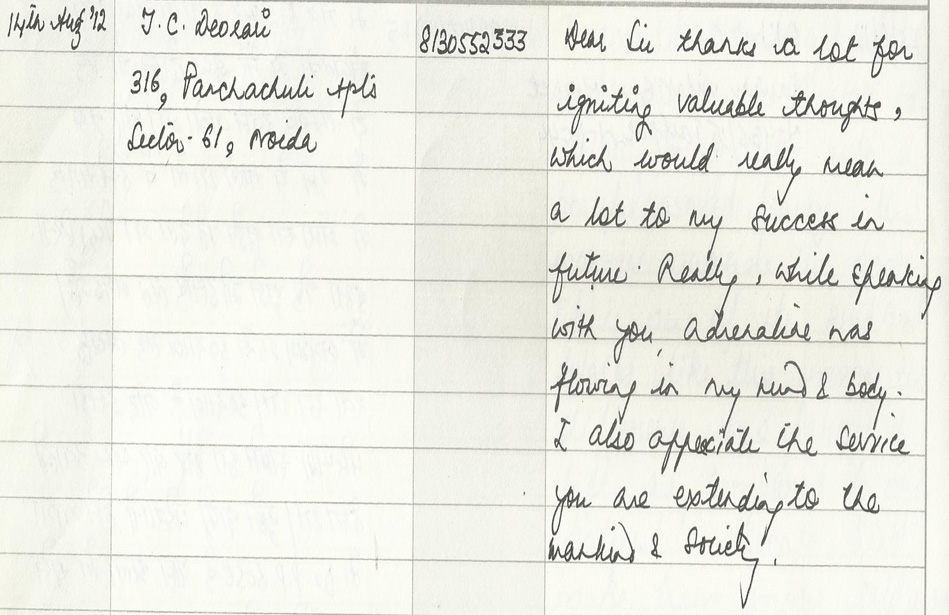 14th Aug '12 T. C. Deorari 8130552333 Dear Sir thanks a lot for
316, Panchachuli Apts igniting valuable thoughts,
Sector- 61, Noida which would really mean
a lot to my success in
future. Really, while speaking
with you, adrenaline was
flowing in my mind & body.
I also appreciate the service
you are extending to the
mankind & society.